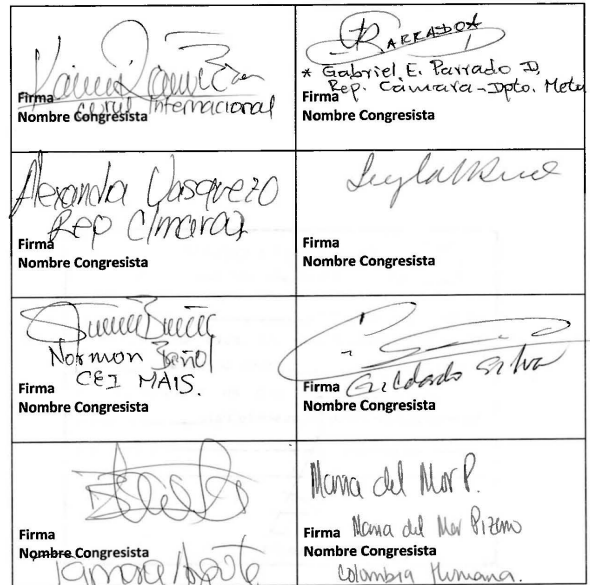 Karmen Ramírez
Firma curul Internacional
Nombre Congresista
PARRADO
* Gabriel E. Parrado D,
Firma Rep. Cámara-Dpto. Meta
Nombre Congresista
Alexandra Vasquez O
Rep C/marca
Firma
Nombre Congresista
Firma
Nombre Congresista
Norman Bañol
CEI MAIS.
Firma
Nombre Congresista
Firma Gildardo Silva
Nombre Congresista
Firma
Nombre Congresista
Tamara
Maria del Mar P.
Firma Maria del Mar Pizarro
Nombre Congresista
Colombia Humana.